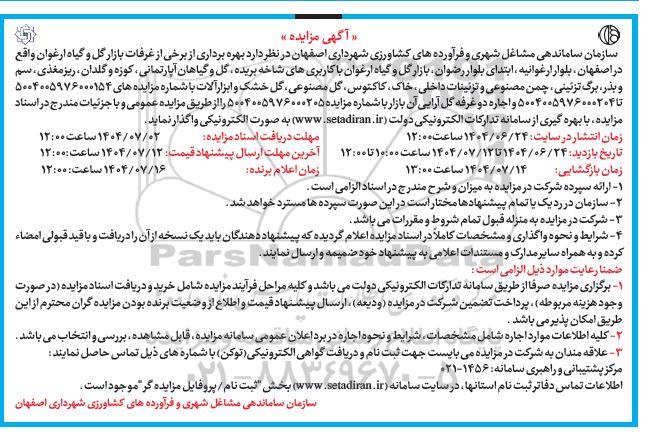 « آگهی مزایده »
سازمان ساماندهی مشاغل شهری و فرآورده های کشاورزی شهرداری اصفهان در نظر دارد بهره برداری از برخی از غرفات بازار گل و گیاه ارغوان واقع
در اصفهان ، بلوار ارغوانیه ، ابتدای بلوار رضوان ، بازار گل و گیاه ارغوان با کاربری های شاخه بریده ، گل و گیاهان آپارتمانی ، کوزه و گلدان ، ریزمغذی ، سم
و بذر ، برگ تزئینی ، چمن مصنوعی و تزئینات داخلی ، خاک ، کاکتوس ، گل مصنوعی ، گل خشک و ابزارآلات با شماره مزایده های ۵۰۰۴۰۰۵۹۷۶۰۰۰۱۵۴
تا ۵۰۰۴۰۰۵۹۷۶۰۰۰۲۰۴ و اجاره دو غرفه گل آرایی آن بازار با شماره مزایده ۵۰۰۴۰۰۵۹۷۶۰۰۰۲۰۵ را از طریق مزایده عمومی و با جزئیات مندرج در اسناد
مزایده ، با بهره گیری از سامانه تدارکات الکترونیکی دولت (www.setadiran.ir) به صورت الکترونیکی واگذار نماید.
زمان انتشار در سایت: ۱۴۰۴/۰۶/۲۴ ساعت ۱۲:۰۰ مهلت دریافت اسناد مزایده: ۱۴۰۴/۰۷/۰۲ ساعت ۱۲:۰۰
تاریخ بازدید: ۱۴۰۴/۰۶/۲۴ تا ۱۴۰۴/۰۷/۱۲ ساعت ۱۰:۰۰ تا ۱۲:۰۰ آخرین مهلت ارسال پیشنهاد قیمت: ۱۴۰۴/۰۷/۱۲ ساعت ۱۲:۰۰
زمان بازگشایی: ۱۴۰۴/۰۷/۱۴ ساعت ۱۳:۰۰ زمان اعلام برنده: ۱۴۰۴/۰۷/۱۶ ساعت ۱۲:۰۰
۱- ارائه سپرده شرکت در مزایده به میزان و شرح مندرج در اسناد الزامی است .
۲- سازمان در رد یک یا تمام پیشنهادها مختار است در این صورت سپرده ها مسترد خواهد شد.
۳- شرکت در مزایده به منزله قبول تمام شروط و مقررات می باشد .
۴- شرایط و نحوه واگذاری و مشخصات کاملا در اسناد مزایده اعلام گردیده که پیشنهاد دهندگان باید یک نسخه از آن را دریافت و با قید قبولی امضاء
کرده و به همراه سایر مدارک و مستندات اعلامی به پیشنهاد خود ضمیمه و ارسال نمایند.
ضمنا رعایت موارد ذیل الزامی است :
۱- برگزاری مزایده صرفا از طریق سامانه تدارکات الکترونیکی دولت می باشد و کلیه مراحل فرآیند مزایده شامل خرید و دریافت اسناد مزایده (در صورت
وجود هزینه مربوطه) ، پرداخت تضمین شرکت در مزایده (ودیعه) ، ارسال پیشنهاد قیمت و اطلاع از وضعیت برنده بودن مزایده گران محترم از این
طریق امکان پذیر می باشد .
۲- کلیه اطلاعات موارد اجاره شامل مشخصات ، شرایط و نحوه اجاره در برد اعلان عمومی سامانه مزایده ، قابل مشاهده ، بررسی و انتخاب می باشد .
۳- علاقه مندان به شرکت در مزایده می بایست جهت ثبت نام و دریافت گواهی الکترونیکی (توکن) با شماره های ذیل تماس حاصل نمایند:
مرکز پشتیبانی و راهبری سامانه: ۱۴۵۶-۰۲۱
اطلاعات تماس دفاتر ثبت نام استانها ، در سایت سامانه (www.setadiran.ir) بخش "ثبت نام / پروفایل مزایده گر" موجود است .
سازمان ساماندهی مشاغل شهری و فرآورده های کشاورزی شهرداری اصفهان
ParsNamadData
۰۲۱-۸۸۳۴۹۶۷۰-۵